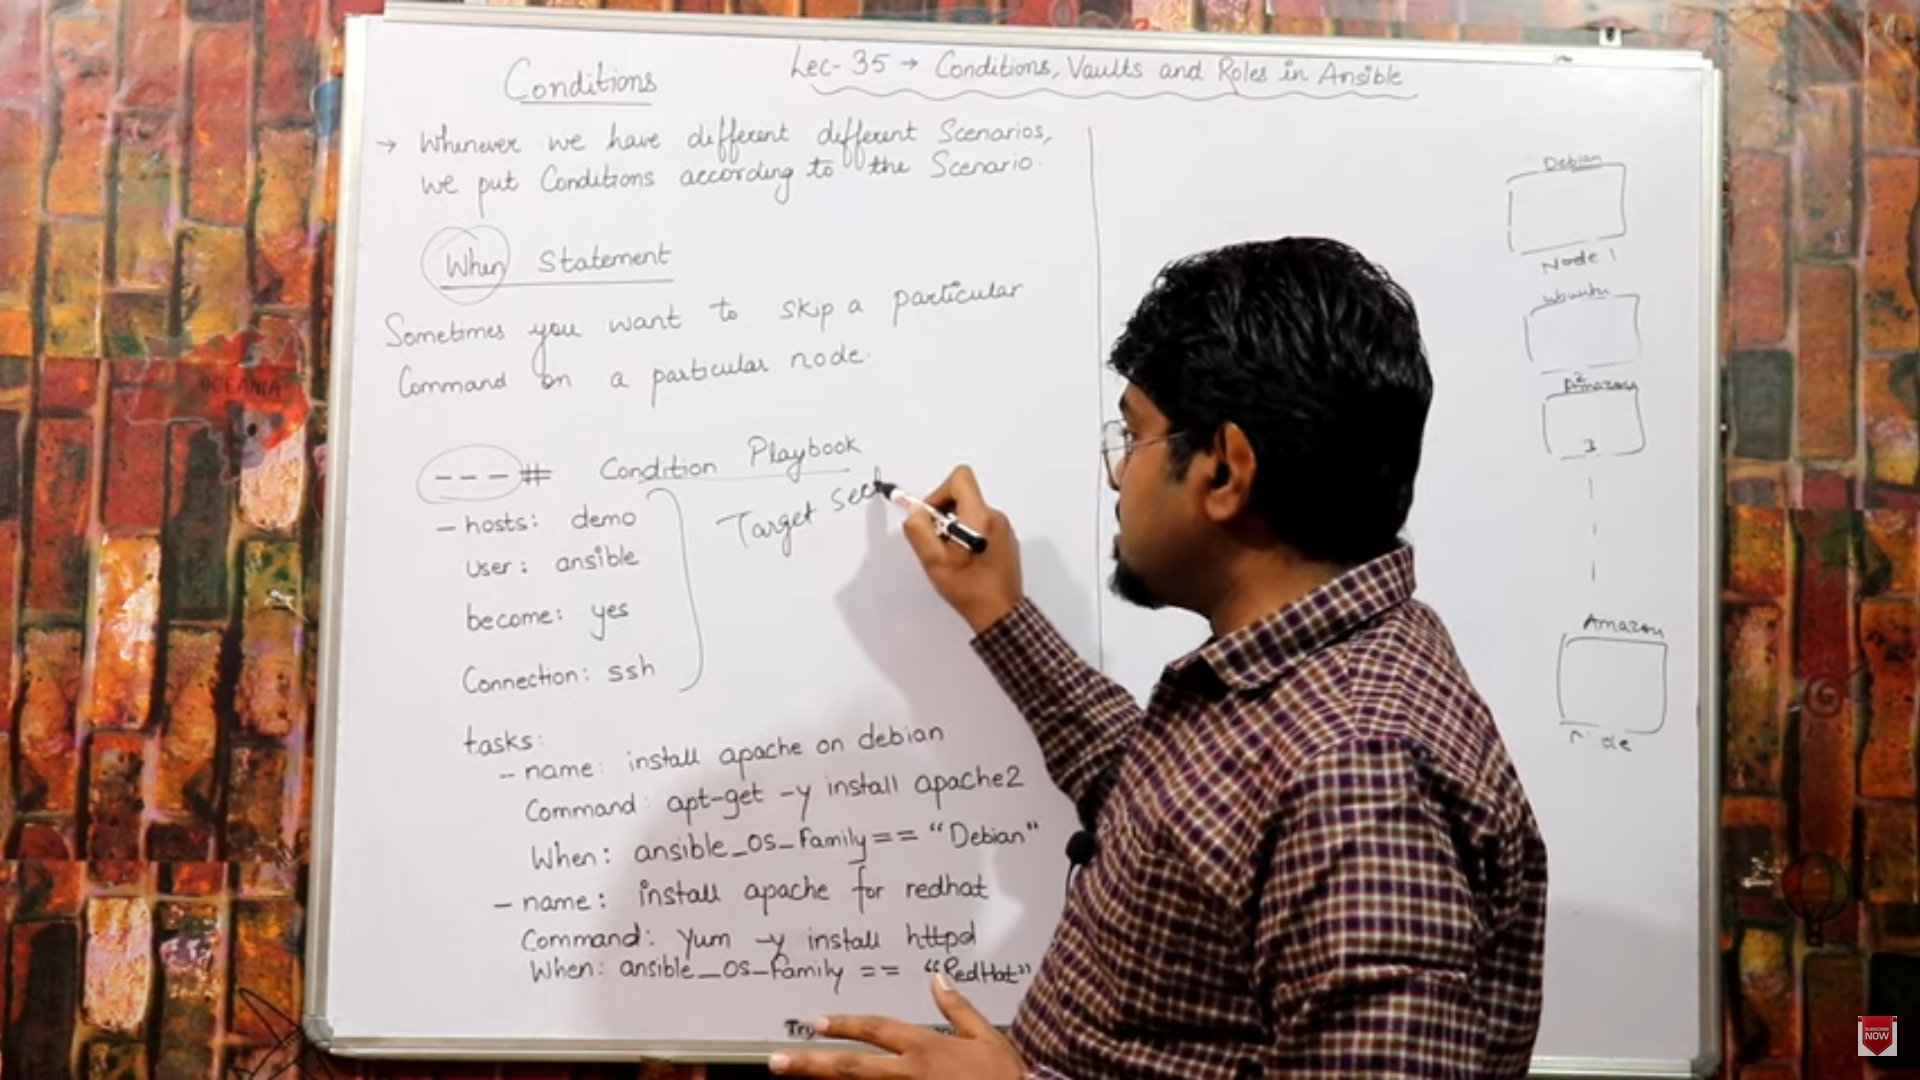 Lec-35 → Conditions, Vaults and Roles in Ansible
Conditions
→ Whenever we have different different Scenarios,
we put Conditions according to the Scenario.
When Statement
Sometimes you want to skip a particular
Command on a particular node.
---# Condition Playbook
- hosts: demo
user: ansible
become: yes
Connection: ssh
Target Sec
tasks:
- name: install apache on debian
Command: apt-get -y install apache2
When: ansible_os_family == "Debian"
- name: install apache for redhat
Command: yum -y install httpd
When: ansible_os_family == "RedHat"
Try
Debian
Node 1
ubuntu
2
Amazon
3
Amazon
OCEANIA
SUBSCRIBE
NOW